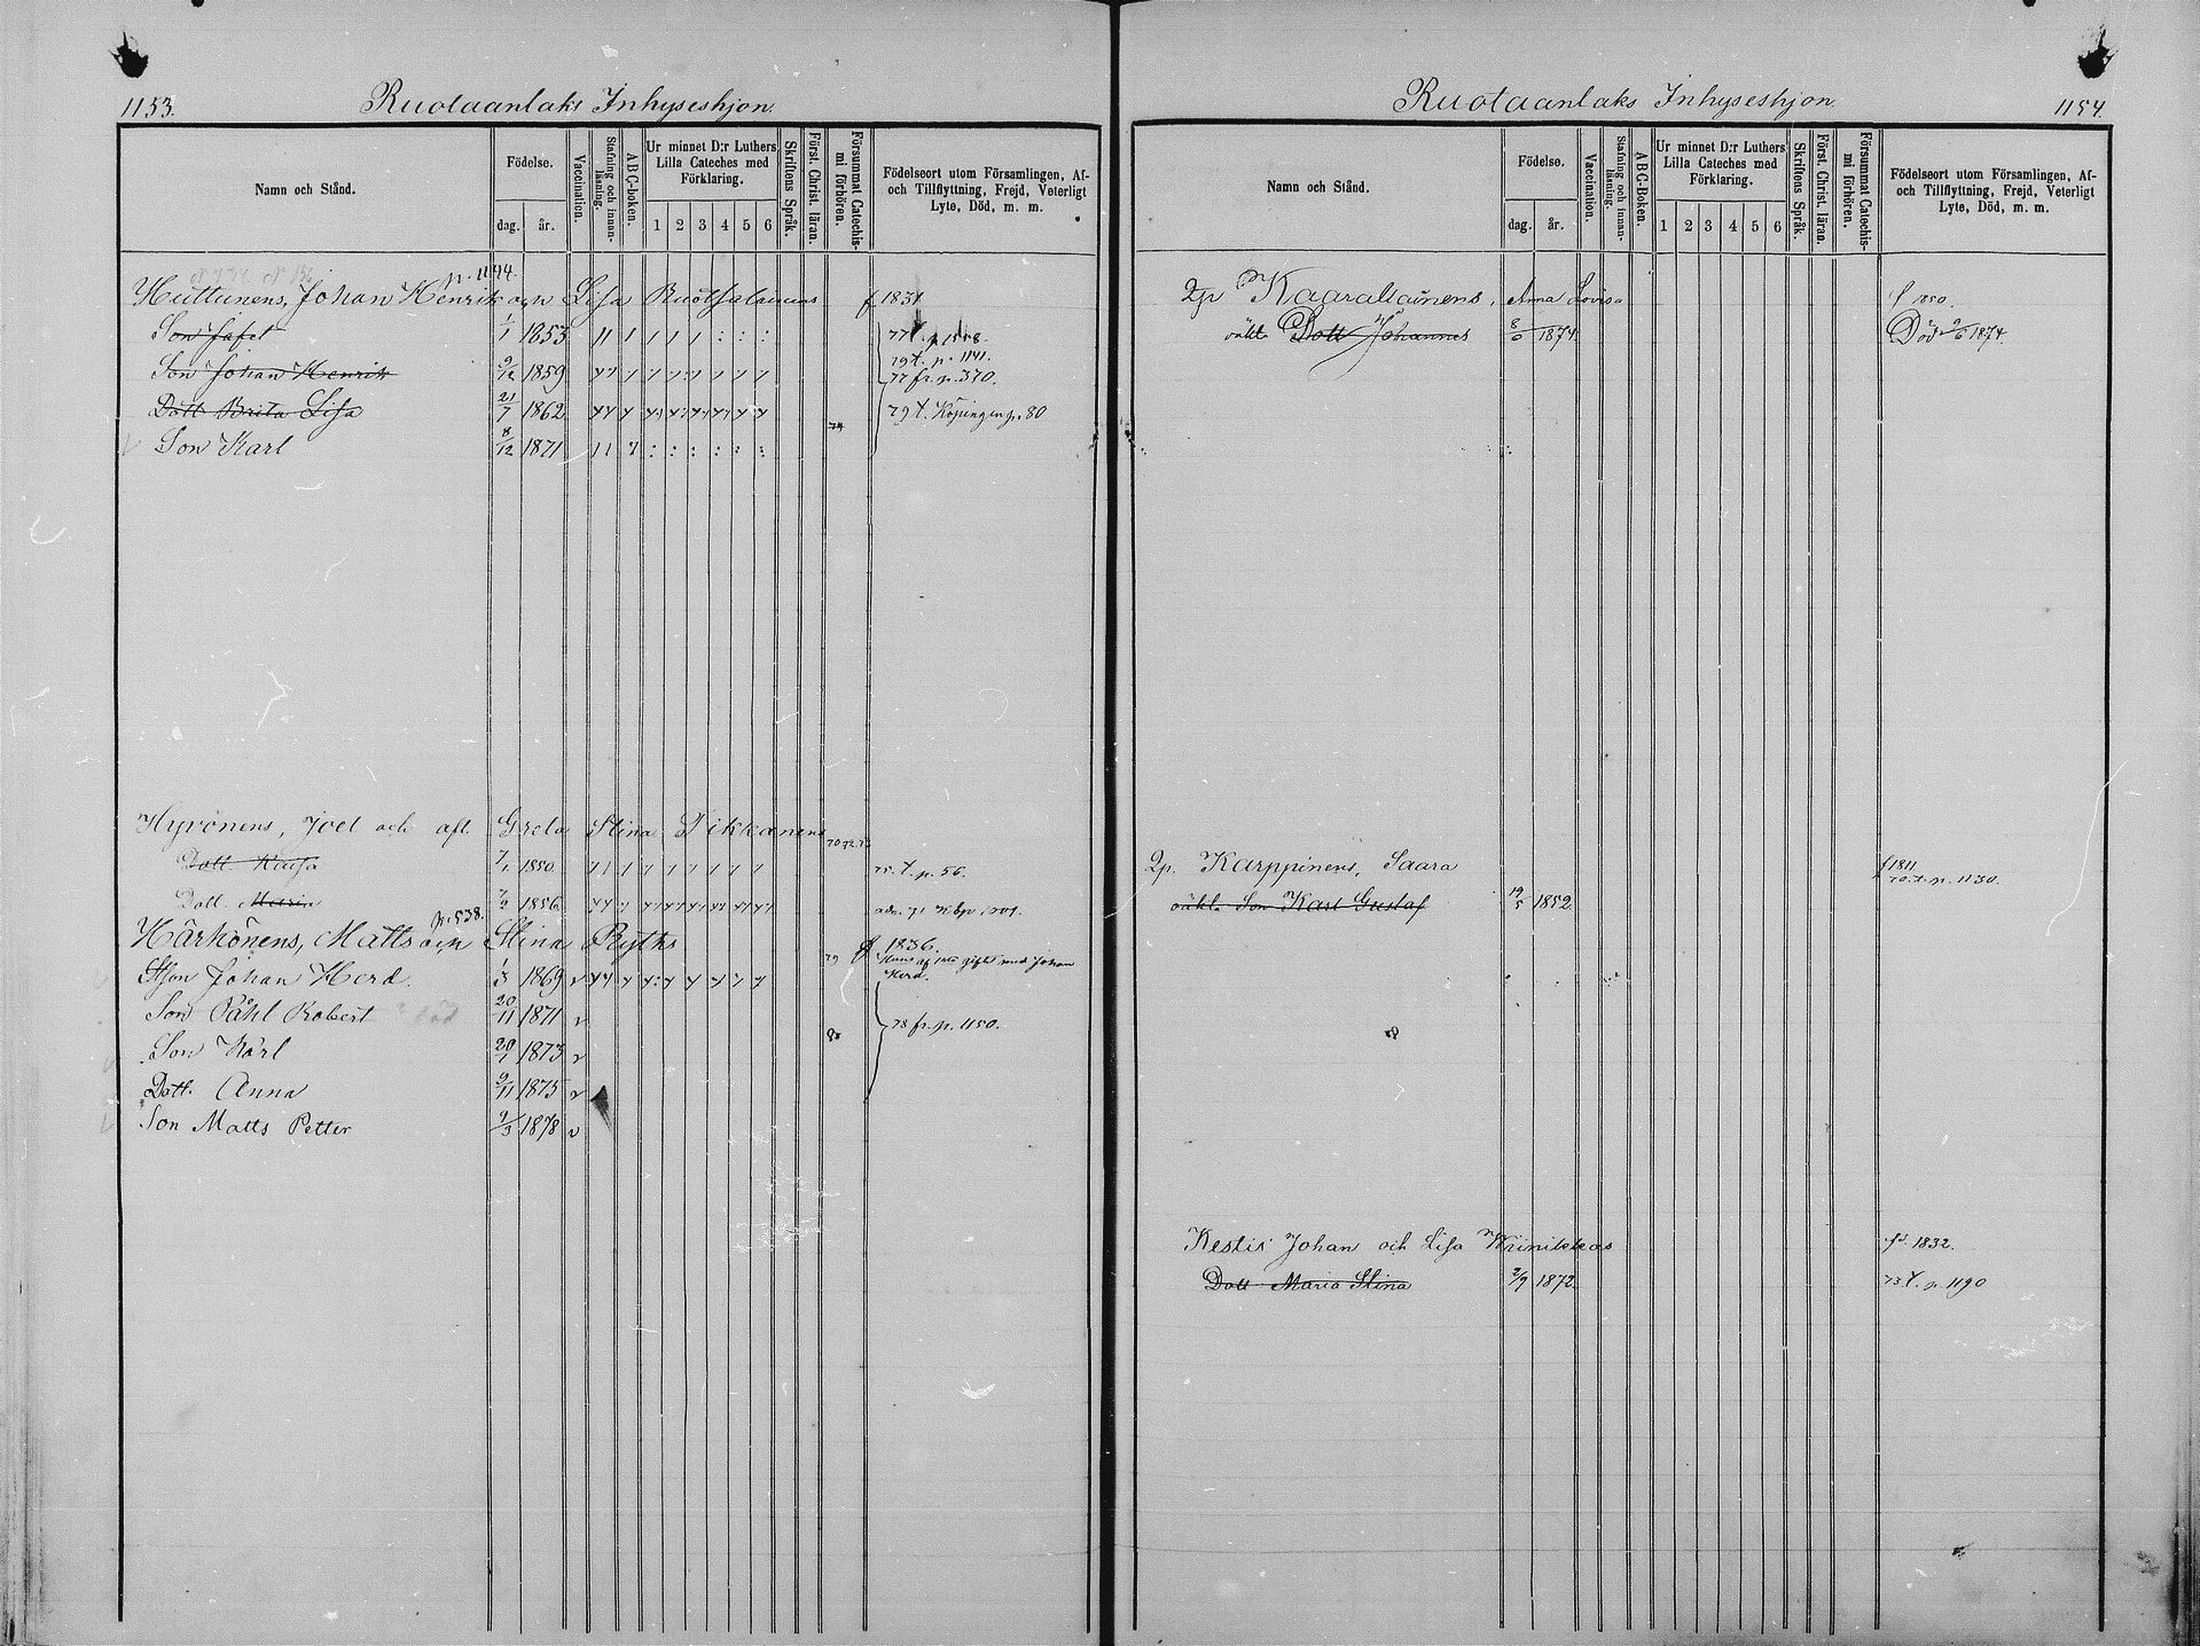 1153.
Ruotaanlaks Inhyseshjon.
Namn och Stånd.
Födelse.
dag.
år.
Vaccination.
Stafning och innanläsning.
ABC-boken.
Ur minnet D:r Luthers Lilla Cateches med Förklaring.
1 2 3 4 5 6
Skriftens Språk.
Först. Christ. läran.
Försummat Catechismi förhören.
Födelseort utom Församlingen, Af- och Tillflyttning, Frejd, Veterligt Lyte, Död, m. m.
p. 1144.
Huttunens, Johan Henrik och Lisa Ruotsalainens f. 1831
Son Jafet 1/1 1853
Son Johan Henrik 9/12 1859 79 t. p. 1141.
77 fr. p. 370.
Dott. Brita Lisa 21/7 1862 79 t. Köpingen p. 80
74
Son Karl 8/12 1871
Hyvönens, Joel och afl. Greta Stina Tikkanens
Dott. Kaisa 1850 75. t. p. 56.
Dott. 1856
p. 538.
Härkönens, Matts och Stina Ryths f 1836.
79
gift med Johan
Herd.
Stfson Johan Herd. 1/3 1869
Son Påhl Robert 20/11 1871
78 fr. p. 1150.
Son Karl 20/1 1873
Dott. Anna 9/11 1875
Son Matts Petter 9/3 1878
Ruotaanlaks Inhyseshjon
1154.
Namn och Stånd.
Födelse.
dag.
år.
Vaccination.
Stafning och innanläsning.
ABC-Boken.
Ur minnet D:r Luthers Lilla Cateches med Förklaring.
1 2 3 4 5 6
Skriftens Språk.
Först. Christ. läran.
Försummat Catechismi förhören.
Födelseort utom Församlingen, Af- och Tillflyttning, Frejd, Veterligt Lyte, Död, m. m.
Qp Kaaraliainens, Anna Lovisa f 1850.
oäkt. Johannes 8/6 1874. Död 9/6 1874.
Qp. Karppinens, Saara f 1811
70. t. p. 1130.
oäkt. Son Karl Gustaf 19/5 1852
Kestis Johan och Lisa fd. 1832.
Dott Maria Stina 2/9 1872. 73. t. p. 1190